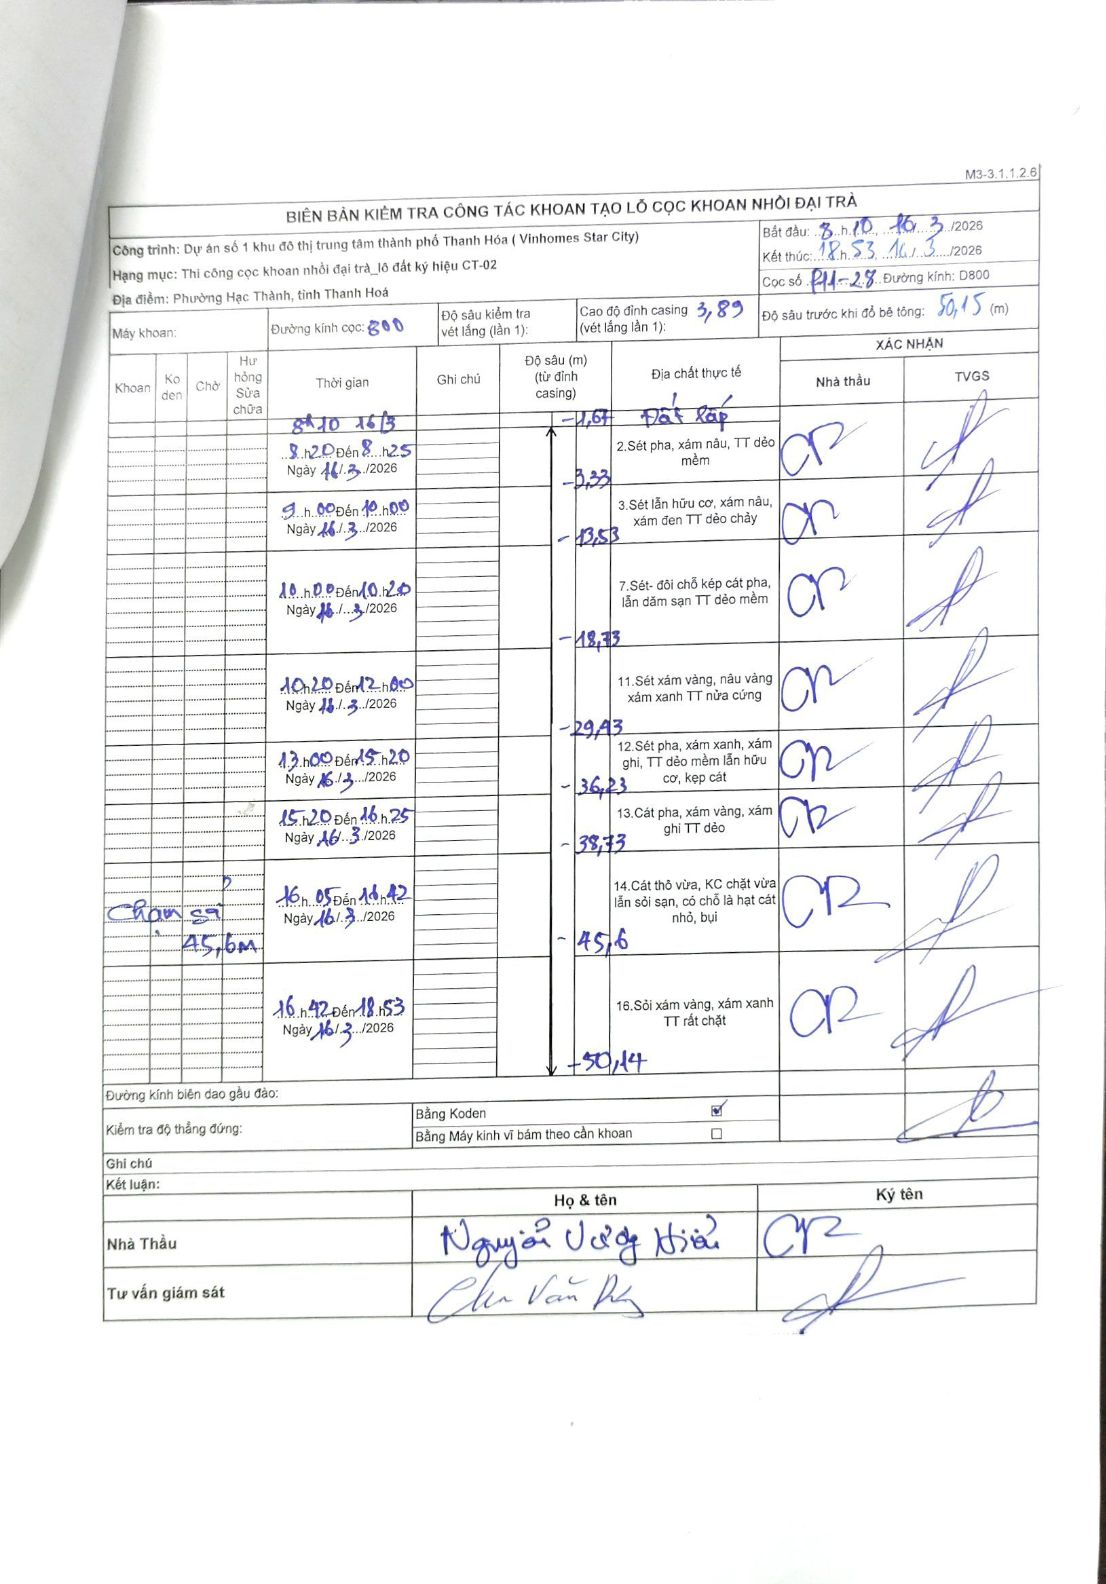 M3-3.1.1.2.6
BIÊN BẢN KIỂM TRA CÔNG TÁC KHOAN TẠO LỖ CỌC KHOAN NHỒI ĐẠI TRÀ
Công trình: Dự án số 1 khu đô thị trung tâm thành phố Thanh Hóa ( Vinhomes Star City)
Hạng mục: Thi công cọc khoan nhồi đại trà_lô đất ký hiệu CT-02
Địa điểm: Phường Hạc Thành, tỉnh Thanh Hoá
Bắt đầu: 8 h 10, 16/3/2026
Kết thúc: 18 h 53, 16/3/2026
Cọc số P11-28 Đường kính: D800
Máy khoan:
Đường kính cọc: 800
Độ sâu kiểm tra vét lắng (lần 1):
Cao độ đỉnh casing 3,89
(vét lắng lần 1):
Độ sâu trước khi đổ bê tông: 50,15 (m)
Khoan
Ko den
Chờ
Hư hỏng Sửa chữa
Thời gian
Ghi chú
Độ sâu (m) (từ đỉnh casing)
Địa chất thực tế
XÁC NHẬN
Nhà thầu
TVGS
8h10 16/3
-1,67
Đất lấp
8 h20 Đến 8 h25
Ngày 16/3/2026
-3,33
2.Sét pha, xám nâu, TT dẻo mềm
9 h 00 Đến 10 h00
Ngày 16/3/2026
-13,53
3.Sét lẫn hữu cơ, xám nâu, xám đen TT dẻo chảy
10 h00 Đến 10 h20
Ngày 16/3/2026
-18,73
7.Sét- đôi chỗ kép cát pha, lẫn dăm sạn TT dẻo mềm
10h20 Đến 12 h00
Ngày 16/3/2026
-29,43
11.Sét xám vàng, nâu vàng xám xanh TT nửa cứng
13h00 Đến 15h20
Ngày 16/3/2026
-36,23
12.Sét pha, xám xanh, xám ghi, TT dẻo mềm lẫn hữu cơ, kẹp cát
15h20 Đến 16h25
Ngày 16/3/2026
-38,73
13.Cát pha, xám vàng, xám ghi TT dẻo
Chạm sỏi
45,6m
16h 05 Đến 16h42
Ngày 16/3/2026
-45,6
14.Cát thô vừa, KC chặt vừa lẫn sỏi sạn, có chỗ là hạt cát nhỏ, bụi
16h42 Đến 18h53
Ngày 16/3/2026
-50,14
16.Sỏi xám vàng, xám xanh TT rất chặt
Đường kính biên dao gầu đào:
Kiểm tra độ thẳng đứng:
Bằng Koden
Bằng Máy kinh vĩ bám theo cần khoan
Ghi chú
Kết luận:
Họ & tên
Ký tên
Nhà Thầu
Nguyễn Vương Hiển
Tư vấn giám sát
Văn